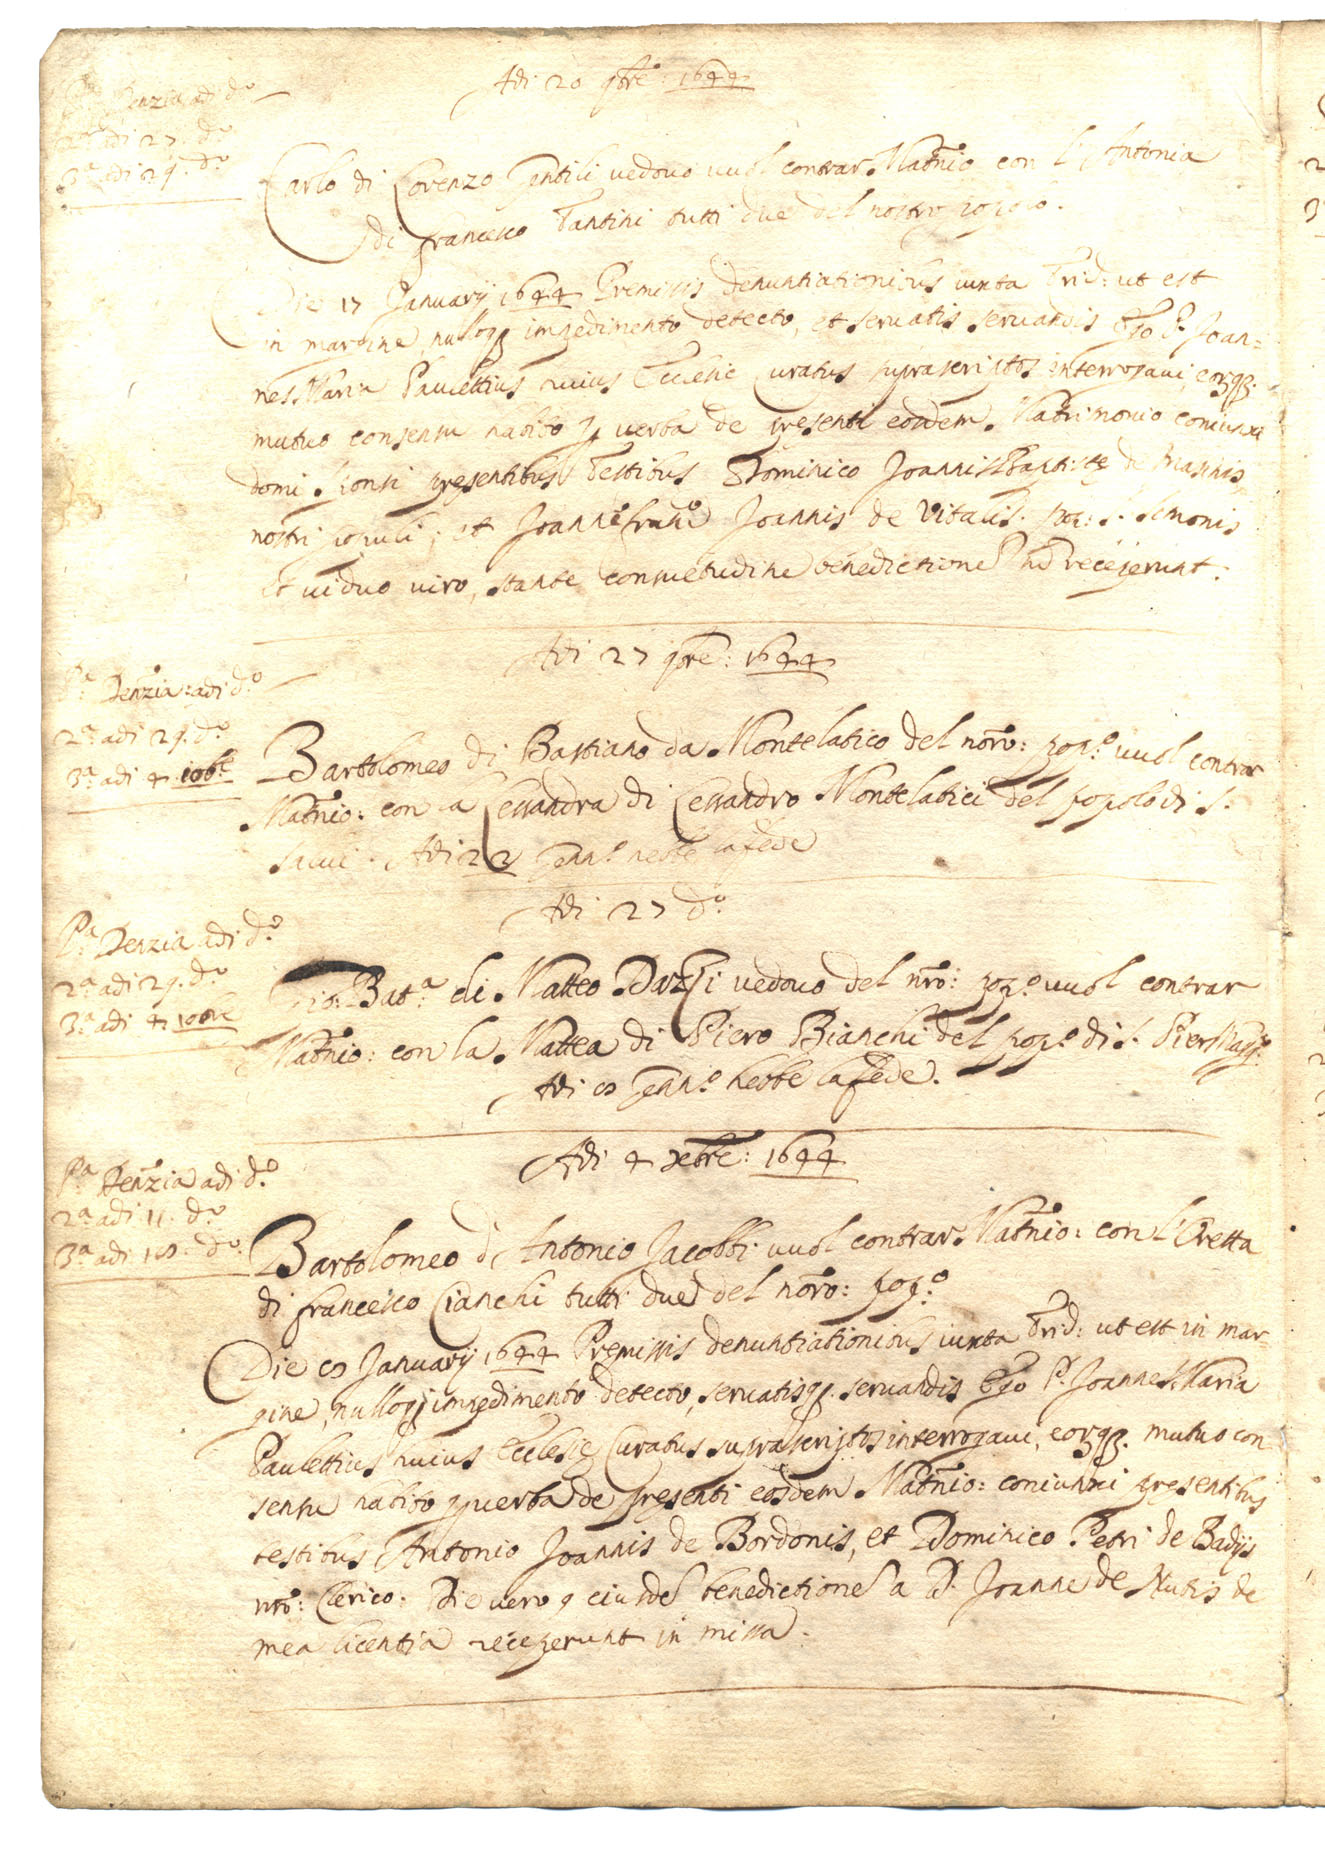 Adi 20 9bre: 1644
Denzia adi d.o
2.a adi 27. d.o
3.a adi 29. d.o
Carlo di Lorenzo Gentili vedovo vuol contrar Matrio con l'Antonia
di francesco Fantini tutti due del nostro popolo.
Die 17 Januarij 1644 Premissis denuntiationibus iuxta Trid: ut est
in margine, nulloq impedimento detecto, et servatis servandis Ego P. Joan=
nes Maria Paulettius huius Ecclesie Curatus suprascriptos interrogavi, eorqz.
mutuo consensu habito p verba de presenti eosdem Matrimonio coniunxi
domi sponsi presentibus testibus Dominico Joannis Bantiste de
nostri populi; et Joanne franc.o Joannis de Vitalis. pop: S. Simonis
et viduo viro, stante consuetudine benedictione no receperunt.
Adi 27 9bre: 1644
P.a Denzia: adi d.o
2.a adi 29. d.o
3.a adi 4 10bre
Bartolomeo di Bastiano da Montelatico del nro: pop.o vuol contrar
Matrio: con a Lessandra di Lessandro Montelatici del popolo di S.
Salvi. Adi 22 Genn.o hebbe la fede
Adi 27 d.o
P.a Denzia adi d.o
2.a adi 29. d.o
3.a adi 4 10bre
Gio: Bat.a di Matteo Dazzi vedovo del nro: pop.o vuol contrar
Matrio: con la Mattea di Piero Bianchi del pop.o di S. Pier Magg.e
Adi Genn.o hebbe la fede.
Adi 4 xbre: 1644
P.a Denzia adi d.o
2.a adi 11. d.o
3.a adi d.o
Bartolomeo di Antonio Jacobbi vuol contrar Matrio: con l'Oretta
di francesco Cianchi tutti due del nro: pop.o
Die Januarij 1644 Premissis denuntiationibus iuxta Trid: ut est in mar-
gine, nulloq impedimento detecto, servatisq. servandis Ego P. Joannes Maria
Paulettius huius Ecclesie Curatus suprascriptos interrogavi, eorqz. mutuo con
sensu habito p verba de presenti eosdem Matrio: coniunxi presentibus
testibus Antonio Joannis de Bordonis, et Dominico Petri de Badijs
nro: Clerico: Die vero 9 eiusde benedictione a D. Joanne de Nutis de
mea licentia receperunt in missa.